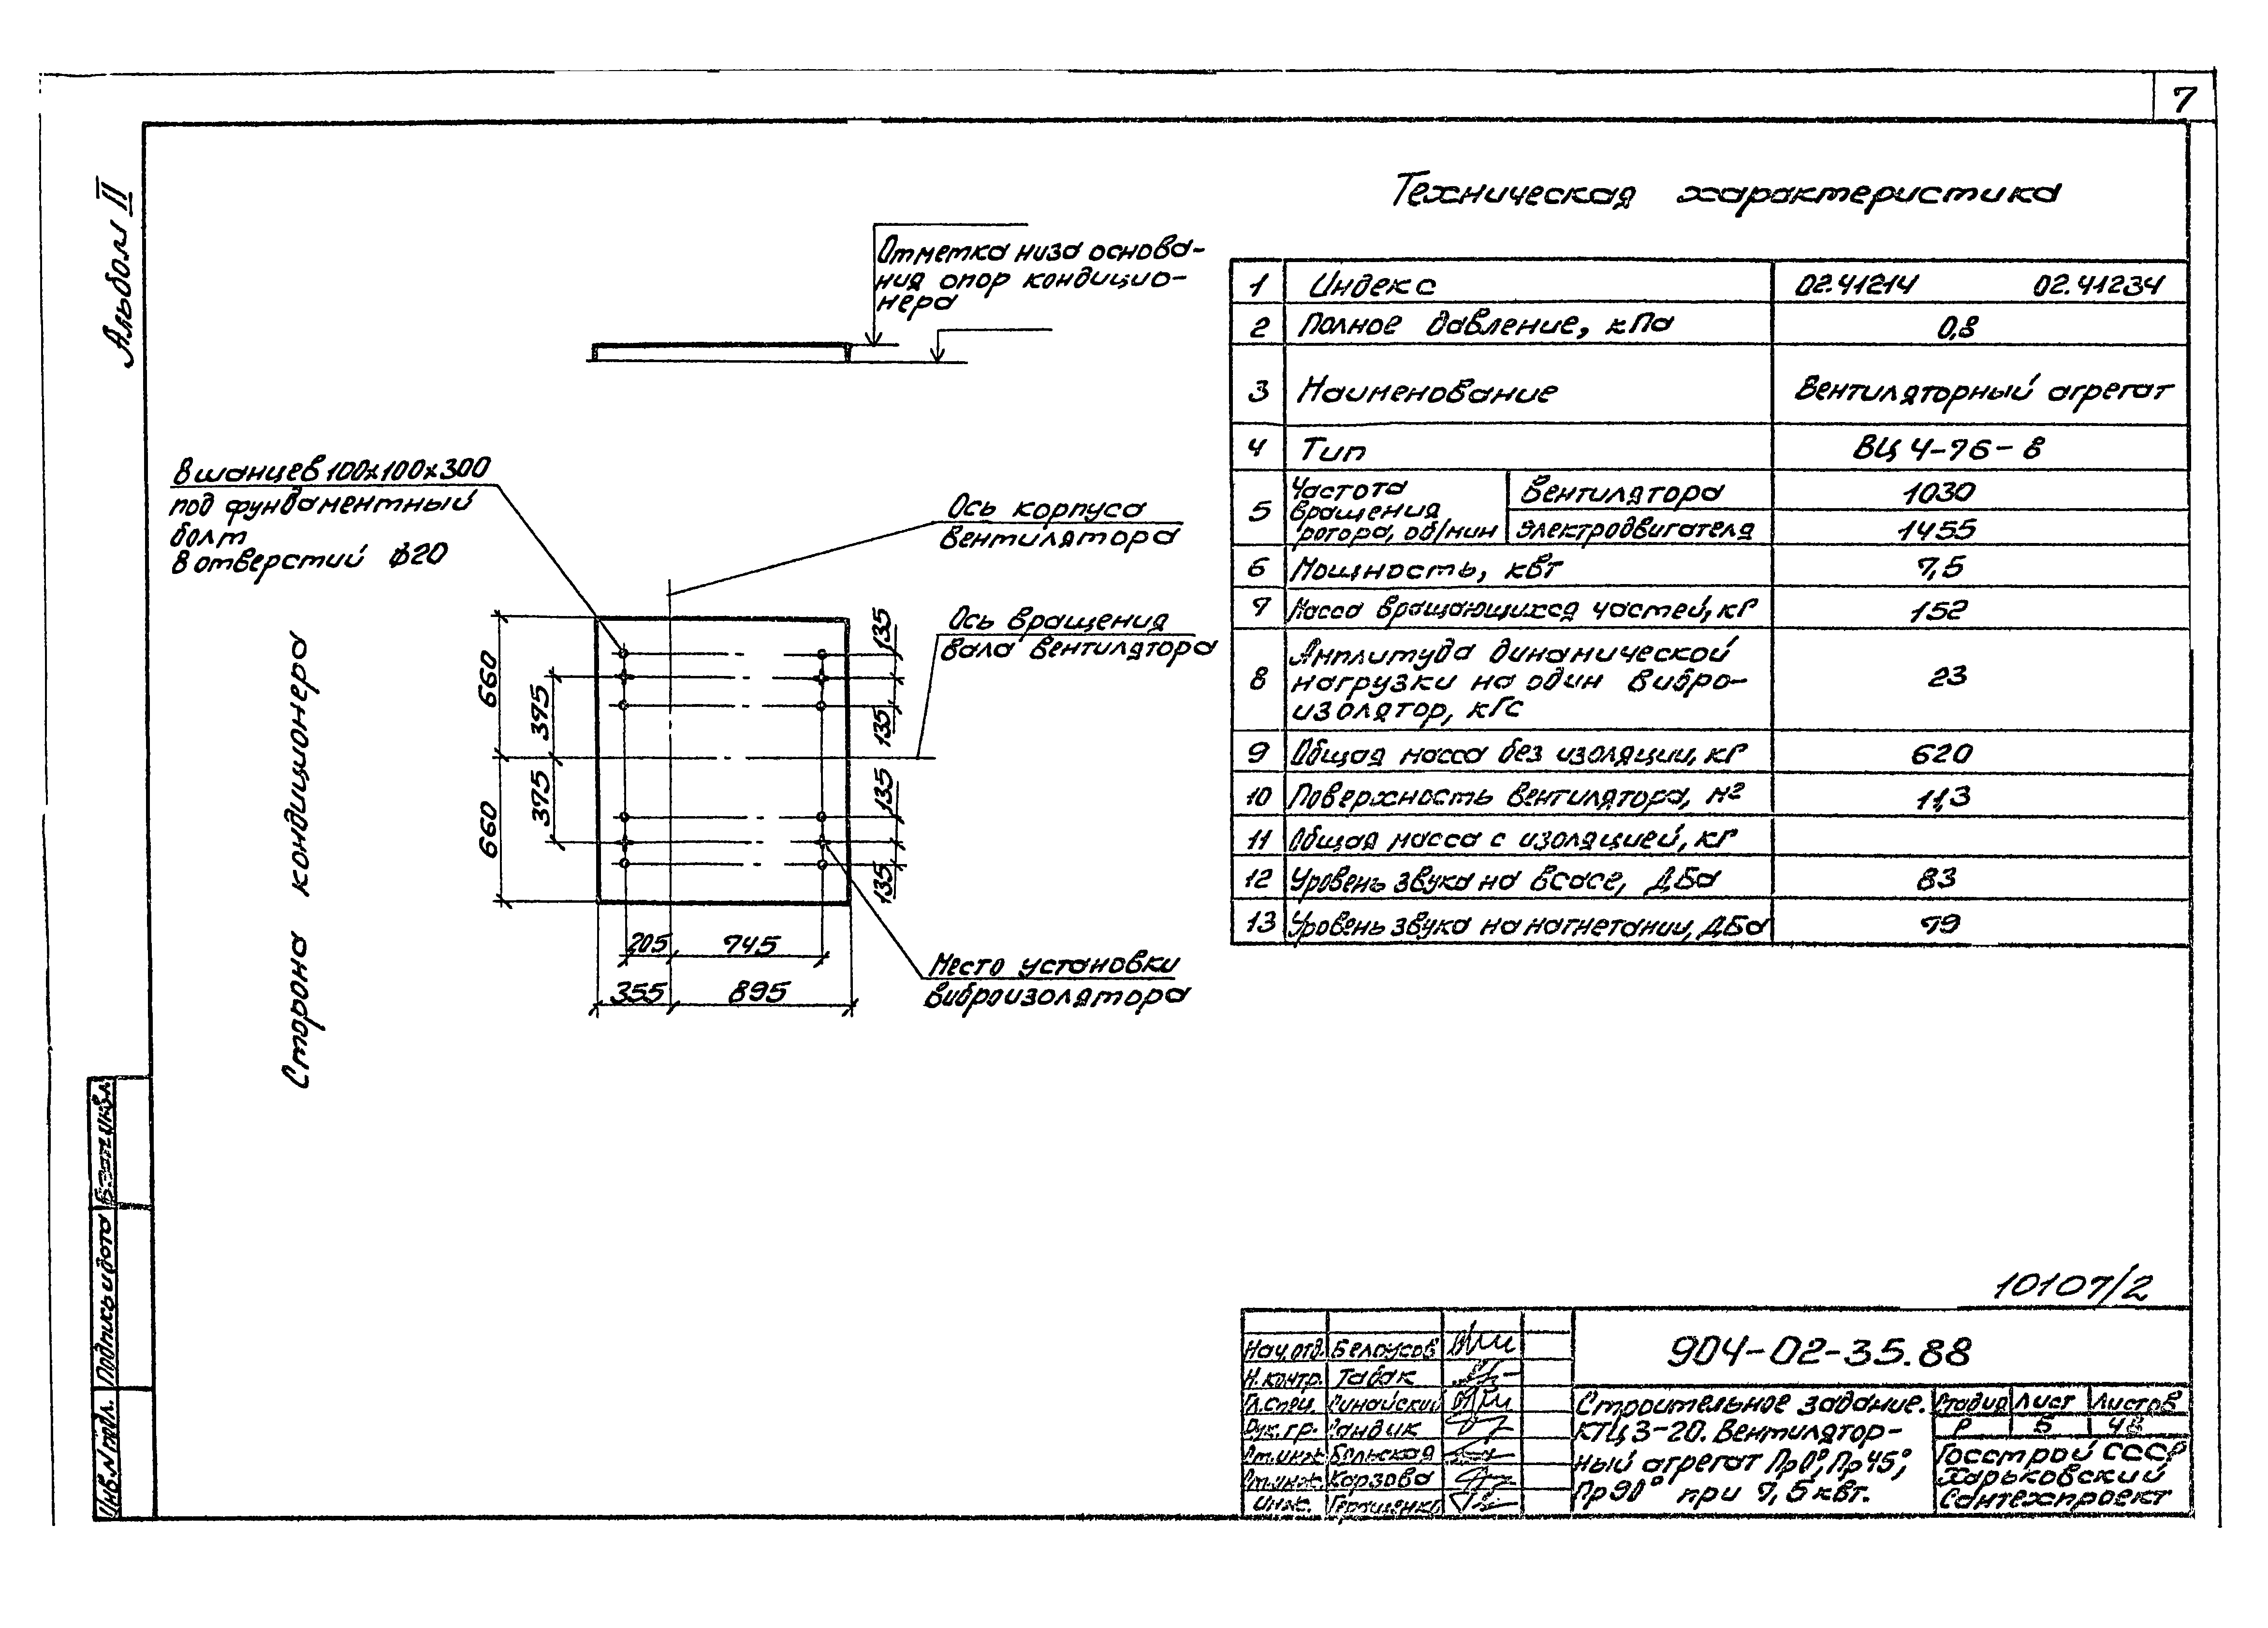 7
Альбом II
Техническая характеристика
Отметка низа основа-
ния опор кондицио-
нера
8 шанцев 100х100х300
под фундаментный
болт
8 отверстий ф20
Ось корпуса
вентилятора
Ось вращения
вала вентилятора
Сторона кондиционера
660
660
375
375
135
135
135
135
205 745
355 895
Место установки
виброизолятора
1 Индекс 02.41214 02.41234
2 Полное давление, кПа 0,8
3 Наименование Вентиляторный агрегат
4 Тип ВЦ 4-76-8
5 Частота вращения ротора, об/мин Вентилятора 1030
Электродвигателя 1455
6 Мощность, квт 7,5
7 Масса вращающихся частей, кг 152
8 Амплитуда динамической
нагрузки на один вибро-
изолятор, кГс 23
9 Общая масса без изоляции, кг 620
10 Поверхность вентилятора, м² 11,3
11 Общая масса с изоляцией, кг
12 Уровень звука на всасе, ДБа 83
13 Уровень звука на нагнетании, ДБа 79
10107/2
904-02-35.88
Нач.отд. Белоусов
Н.контр. Табак
Гл.спец.
Рук.гр.
Ст.инж. Бельская
Ст.инж. Карзова
Инж. Геращенко
Строительное задание.
КТЦ3-20. Вентилятор-
ный агрегат Пр0°, Пр45°,
Пр90° при 7,5квт.
Стадия Лист Листов
Р 5
Госстрой СССР
Харьковский
Сантехпроект
Взам.инв.
Подпись и дата
Инв.N подл.